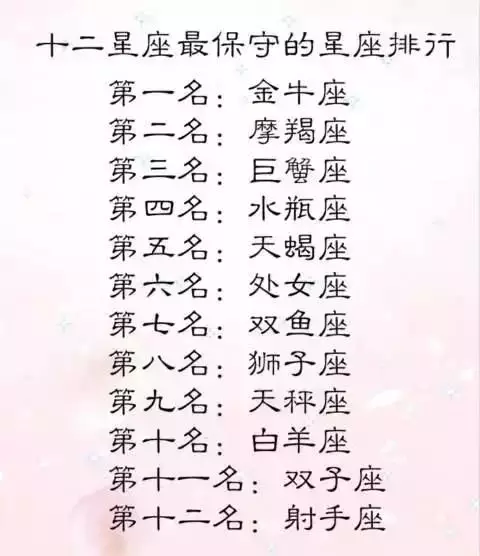 十二星座最保守的星座排行
第一名：金牛座
第二名：摩羯座
第三名：巨蟹座
第四名：水瓶座
第五名：天蝎座
第六名：处女座
第七名：双鱼座
第八名：狮子座
第九名：天秤座
第十名：白羊座
第十一名：双子座
第十二名：射手座